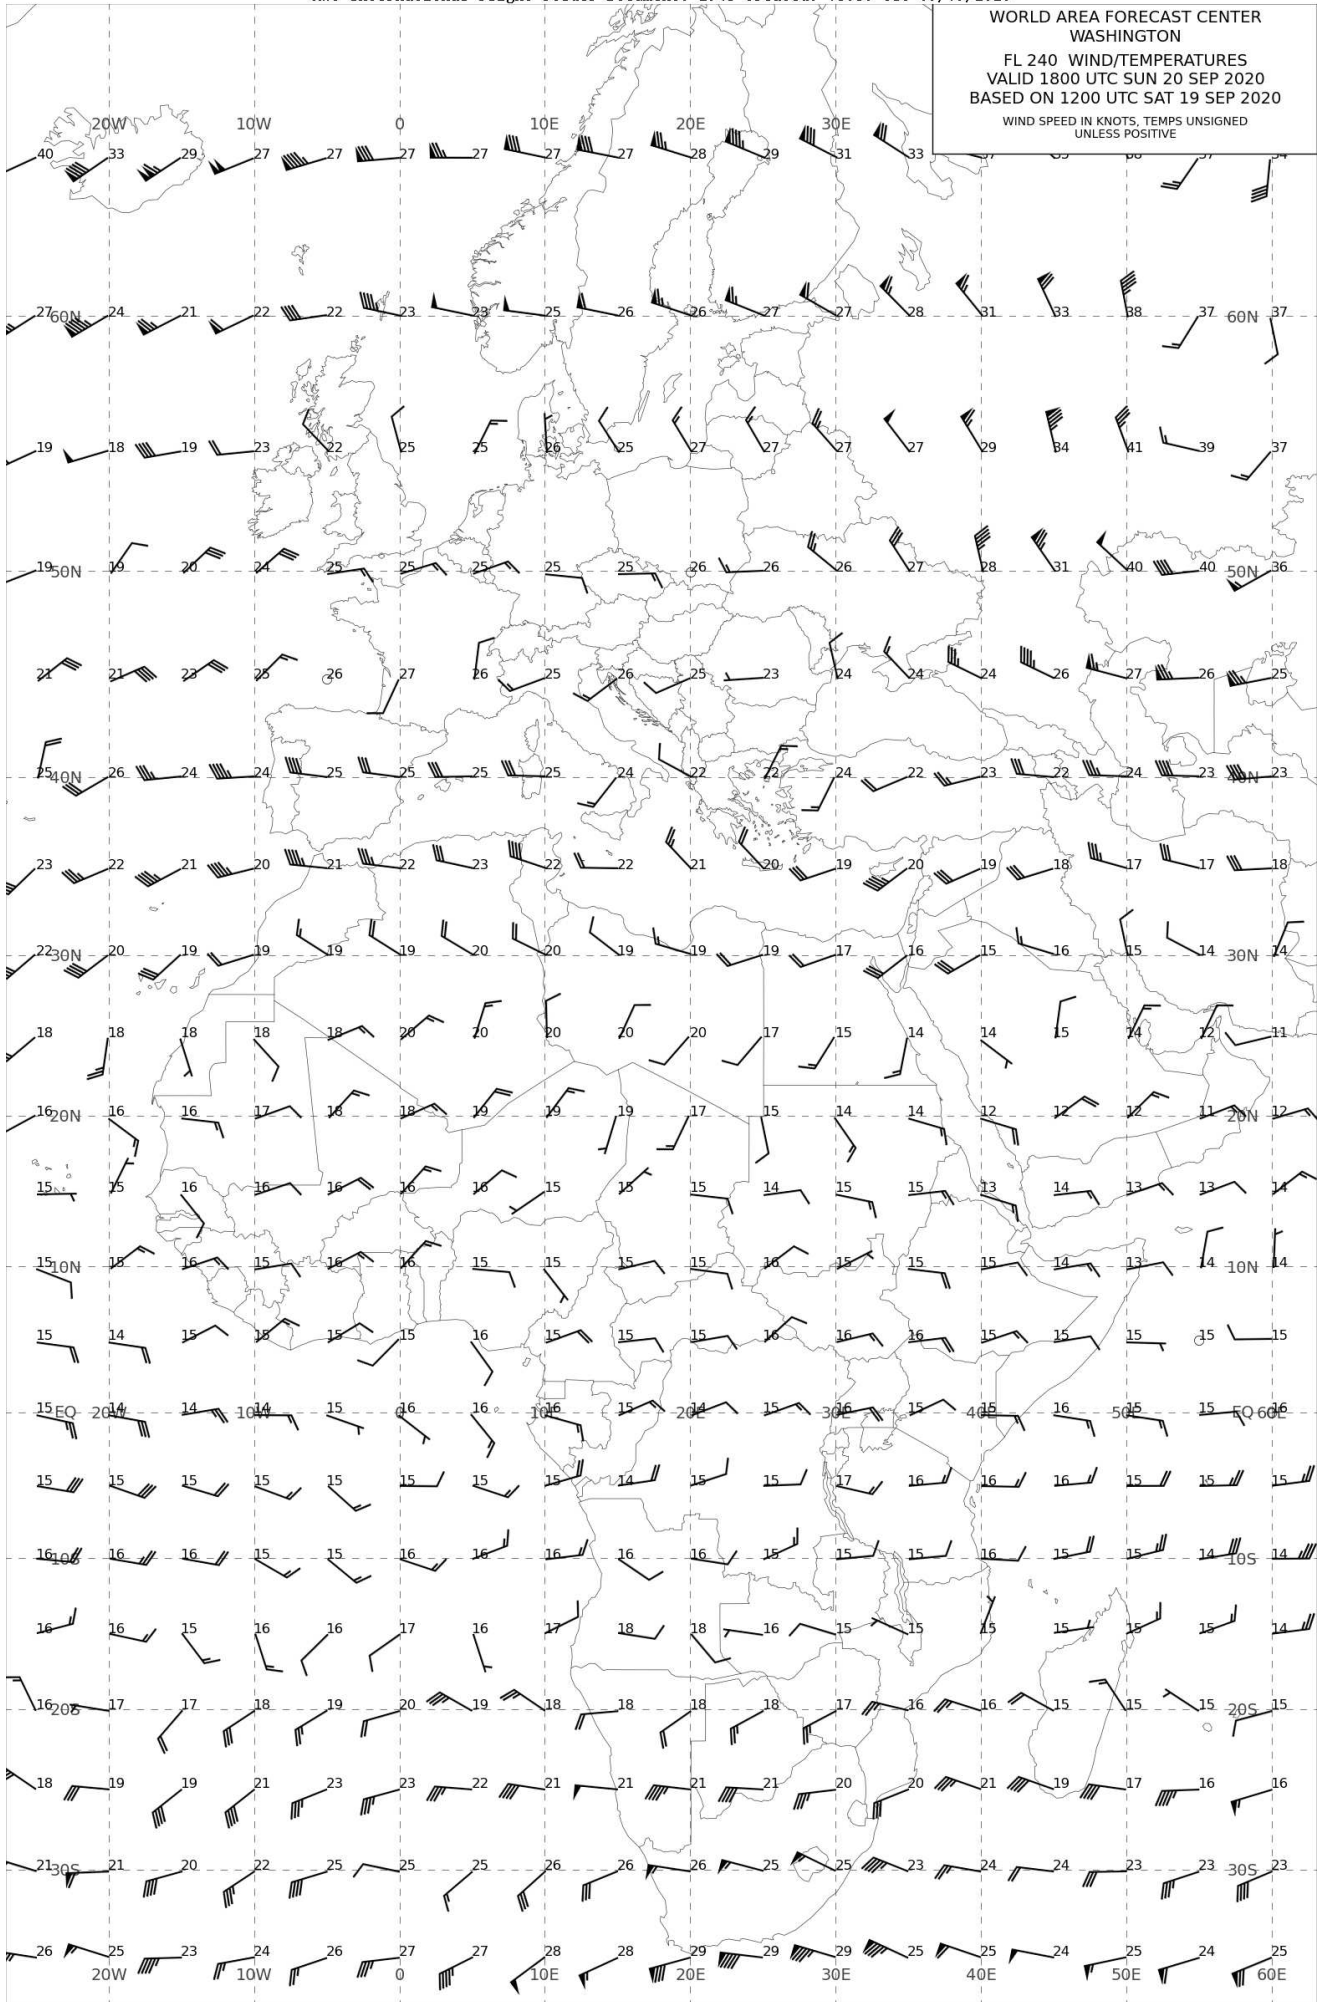 WORLD AREA FORECAST CENTER
WASHINGTON
FL 240 WIND/TEMPERATURES
VALID 1800 UTC SUN 20 SEP 2020
BASED ON 1200 UTC SAT 19 SEP 2020
WIND SPEED IN KNOTS, TEMPS UNSIGNED
UNLESS POSITIVE
20W 10W 0 10E 20E 30E
40 33 29 27 27 27 27 27 27 28 29 31 33
27 60N 24 21 22 22 23 23 25 26 26 27 27 28 31 33 38 37 60N 37
19 18 19 23 22 25 25 26 25 27 27 27 27 29 34 41 39 37
19 50N 19 20 24 25 25 25 25 25 26 26 26 27 28 31 40 40 50N 36
21 21 23 25 26 27 26 25 26 25 23 24 24 24 26 27 26 25
25 40N 26 24 24 25 25 25 25 24 22 22 24 22 23 22 24 23 40N 23
23 22 21 20 21 22 23 22 22 21 20 19 20 19 18 17 17 18
22 30N 20 19 19 19 19 20 20 19 19 19 17 16 15 16 15 14 30N 14
18 18 18 18 18 20 20 20 20 20 17 15 14 14 15 14 12 11
16 20N 16 16 17 18 18 19 19 19 17 15 14 14 12 12 12 11 20N 12
15 15 16 16 16 16 16 15 15 15 14 15 15 13 14 13 13 14
15 10N 15 16 15 16 16 15 15 15 15 16 15 15 15 14 13 14 10N 14
15 14 15 15 15 15 16 15 15 15 16 16 16 15 15 15 15 15
15 EQ 20W 14 14 10W 0 16 16 10E 15 20E 15 30E 15 40E 15 16 50E 15 15 EQ 60E 16
15 15 15 15 15 15 15 15 14 15 15 17 16 16 16 15 15 15
16 10S 16 16 15 15 16 16 16 16 16 15 15 15 16 15 15 14 10S 14
16 16 15 16 16 17 16 17 18 18 16 15 15 15 15 15 15 14
16 20S 17 17 18 19 20 19 18 18 18 18 17 16 16 15 15 15 20S 15
18 19 19 21 23 23 22 21 21 21 21 20 20 21 19 17 16 16
21 30S 21 20 22 25 25 25 26 26 26 25 25 23 24 24 23 23 30S 23
26 25 23 24 26 27 27 28 28 29 29 29 25 25 24 25 24 25
20W 10W 0 10E 20E 30E 40E 50E 60E